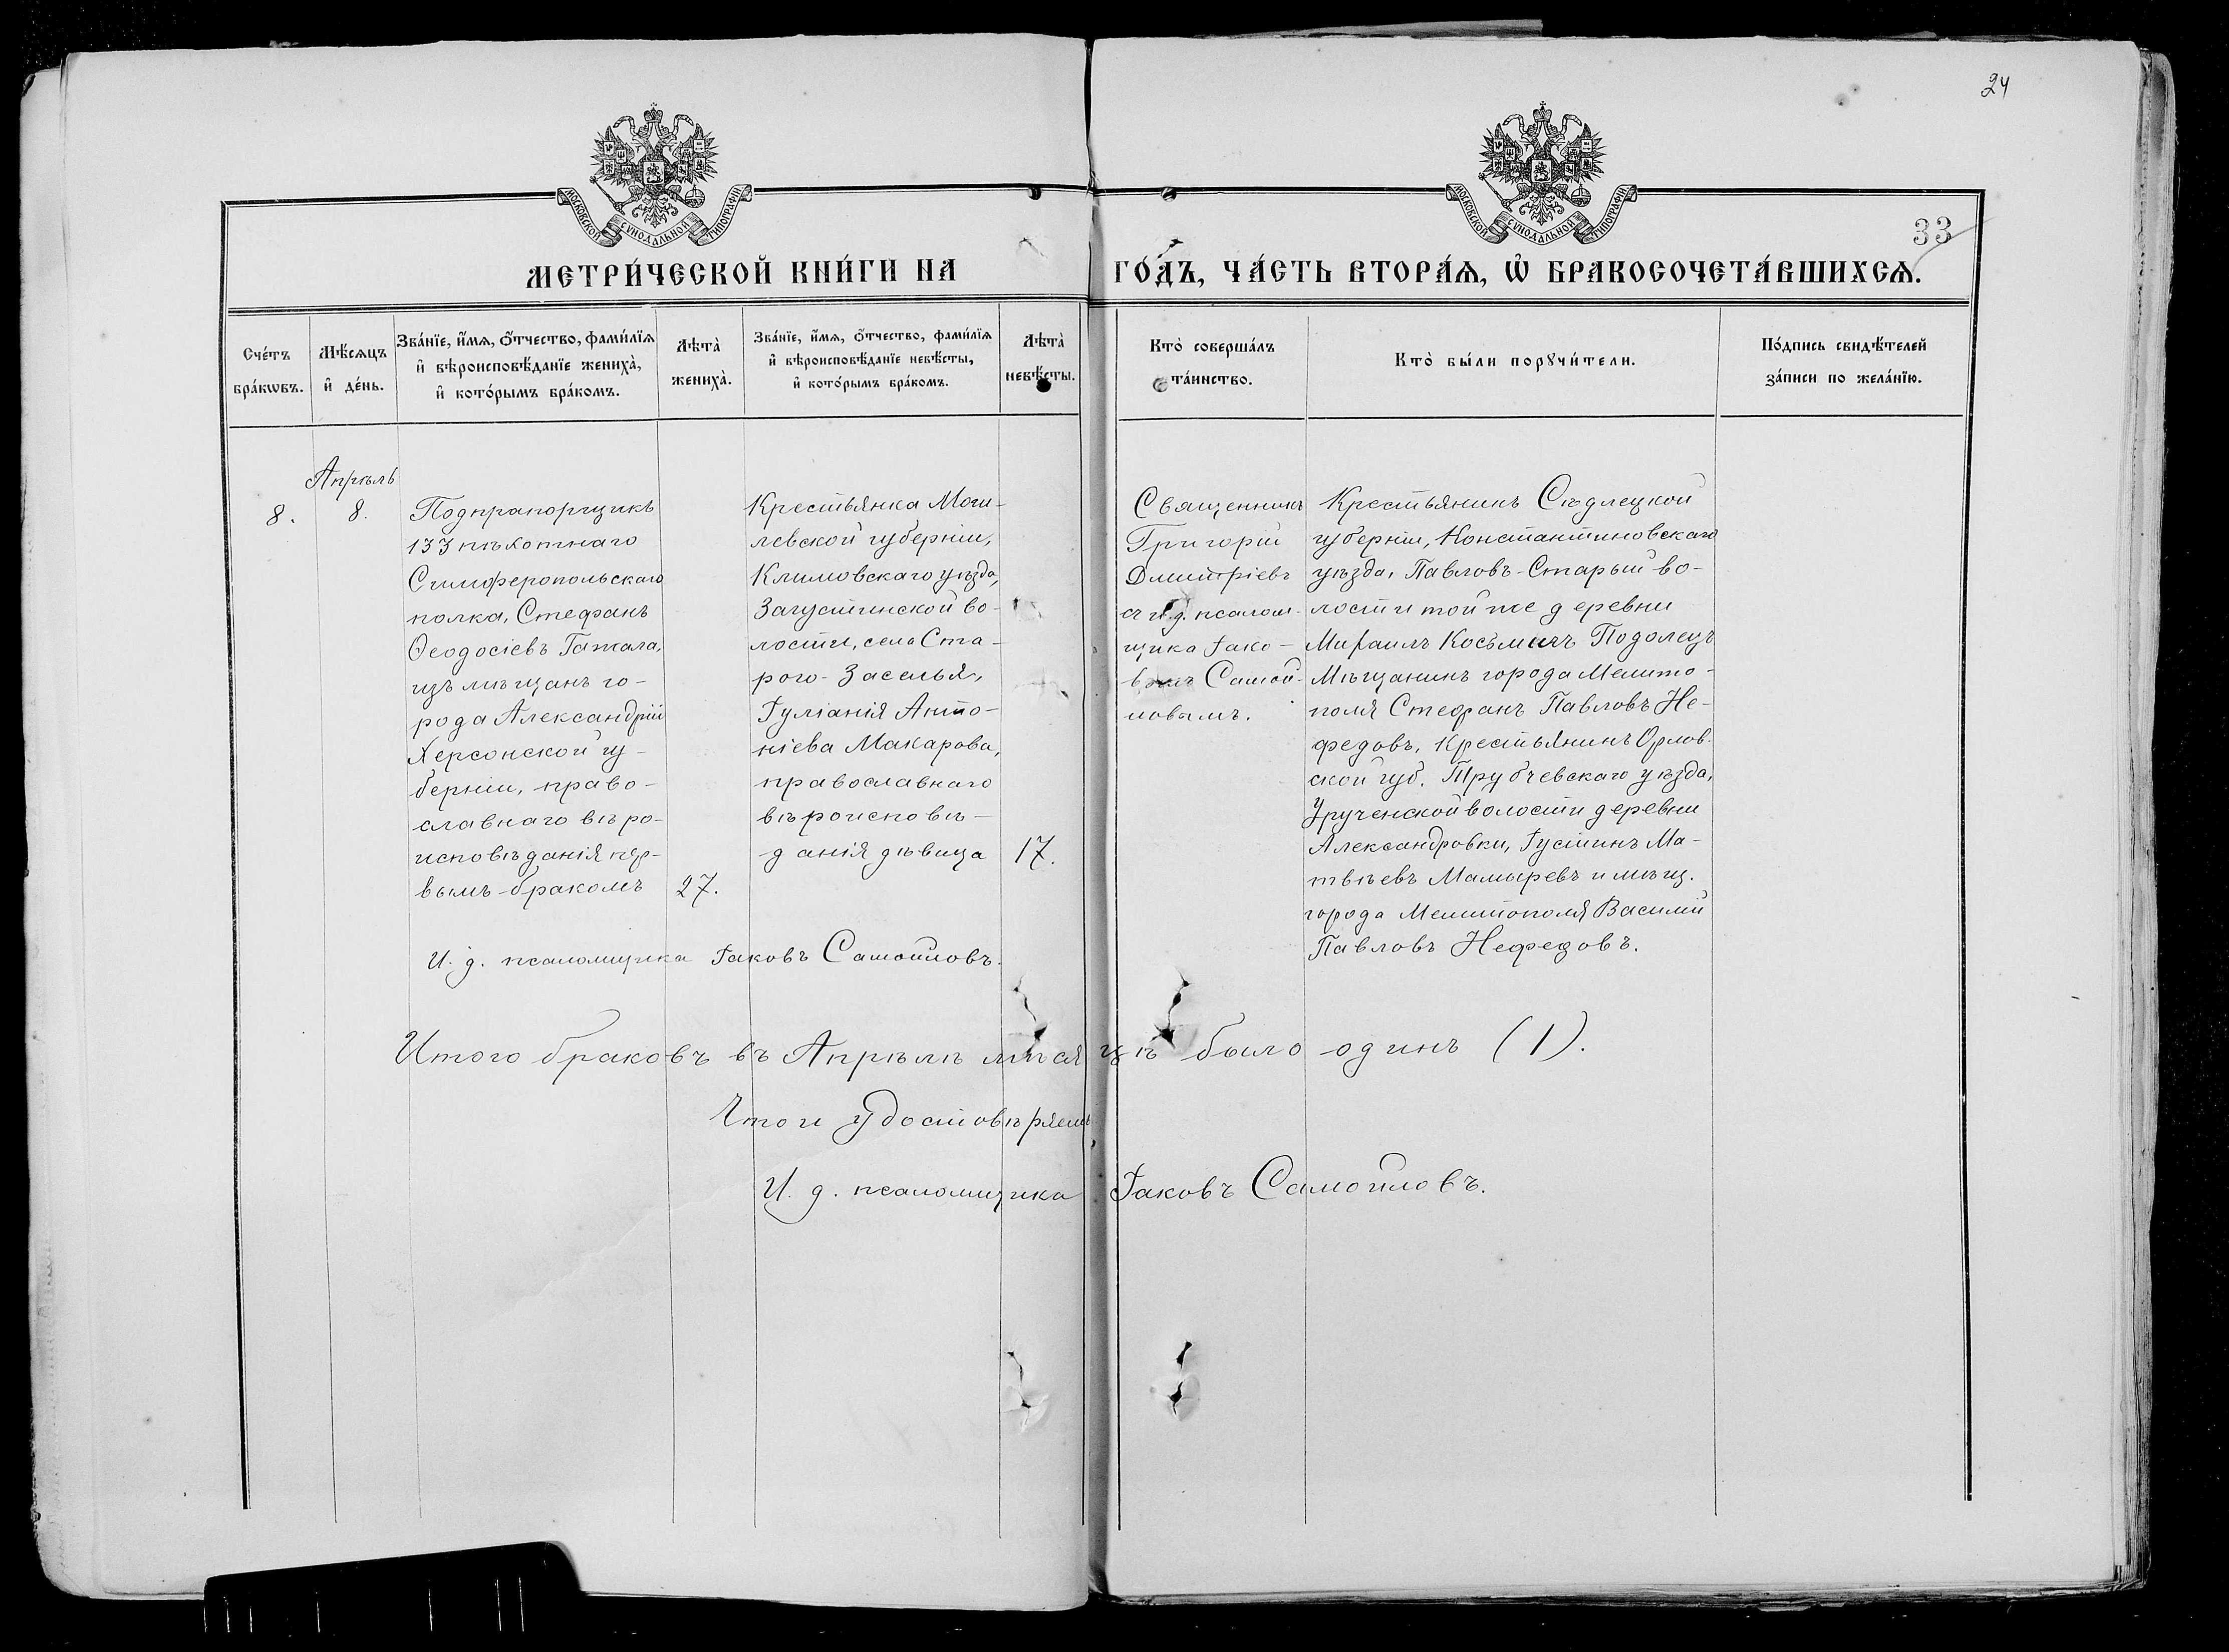 24
МОСКОВСКОЙ СѴНОДАЛЬНОЙ ТИПОГРАФІИ
МОСКОВСКОЙ СѴНОДАЛЬНОЙ ТИПОГРАФІИ
33
МЕТРИ́ЧЕСКОЙ КНИ́ГИ НА ГО́ДЪ, ЧА́СТЬ ВТОРА́Ѧ, Ѽ БРАКОСОЧЕТА́ВШИХСѦ.
Сче́тъ бра́кѡвъ.
Мѣ́сѧцъ и҆ де́нь.
Зва́нїе, и҆́мѧ, ѻ҆́тчество, фами́лїѧ
и҆ вѣроисповѣ́данїе жениха̀,
и҆ кото́рымъ бра́комъ.
Лѣта̀ жениха̀.
Зва́нїе, и҆́мѧ, ѻ҆́тчество, фами́лїѧ
и҆ вѣроисповѣ́данїе невѣ́сты,
и҆ кото́рымъ бра́комъ.
Лѣта̀ невѣ́сты.
Кто̀ соверша́лъ та́инство.
Кто̀ бы́ли порꙋчи́тели.
По́дпись свидѣ́телей
за́писи по жела́нїю.
8.
Апрѣль
8.
Подпрапорщикъ
133 пѣхотнаго
Симферопольскаго
полка, Стефанъ
Ѳеодосіевъ Гатала,
изъ мѣщанъ го-
рода Александріи
Херсонской гу-
берніи, право-
славнаго вѣро-
исповѣданія пер-
вымъ бракомъ
27.
Крестьянка Моги-
левской губерніи,
Климовскаго уѣзда,
Загустинской во-
лости, села Ста-
рого-Заселья,
Іуліанія Анто-
ніева Макарова,
православнаго
вѣроисповѣ-
данія дѣвица
17.
Священникъ
Григорій
Дмитріевъ
съ и.д. псалом-
щика Іако-
вымъ Самой-
ловымъ.
Крестьянинъ Сѣдлецкой
губерніи, Константиновскаго
уѣзда, Павловъ-Старый во-
лости той же деревни
Михаилъ Косьминъ Подолецъ
Мѣщанинъ города Мелито-
поля Стефанъ Павловъ Не-
федовъ, Крестьянинъ Орлов-
ской губ. Трубчевскаго уѣзда,
Урученской волости деревни
Александровки, Іустинъ Ма-
твѣевъ Мамыревъ и мѣщ.
города Мелитополя Василій
Павловъ Нефедовъ.
И. д. псаломщика Іаковъ Самойловъ.
Итого браковъ въ Апрѣлѣ мѣсяцѣ было одинъ (1).
Что и удостовѣряемъ
И. д. псаломщика Іаковъ Самойловъ.